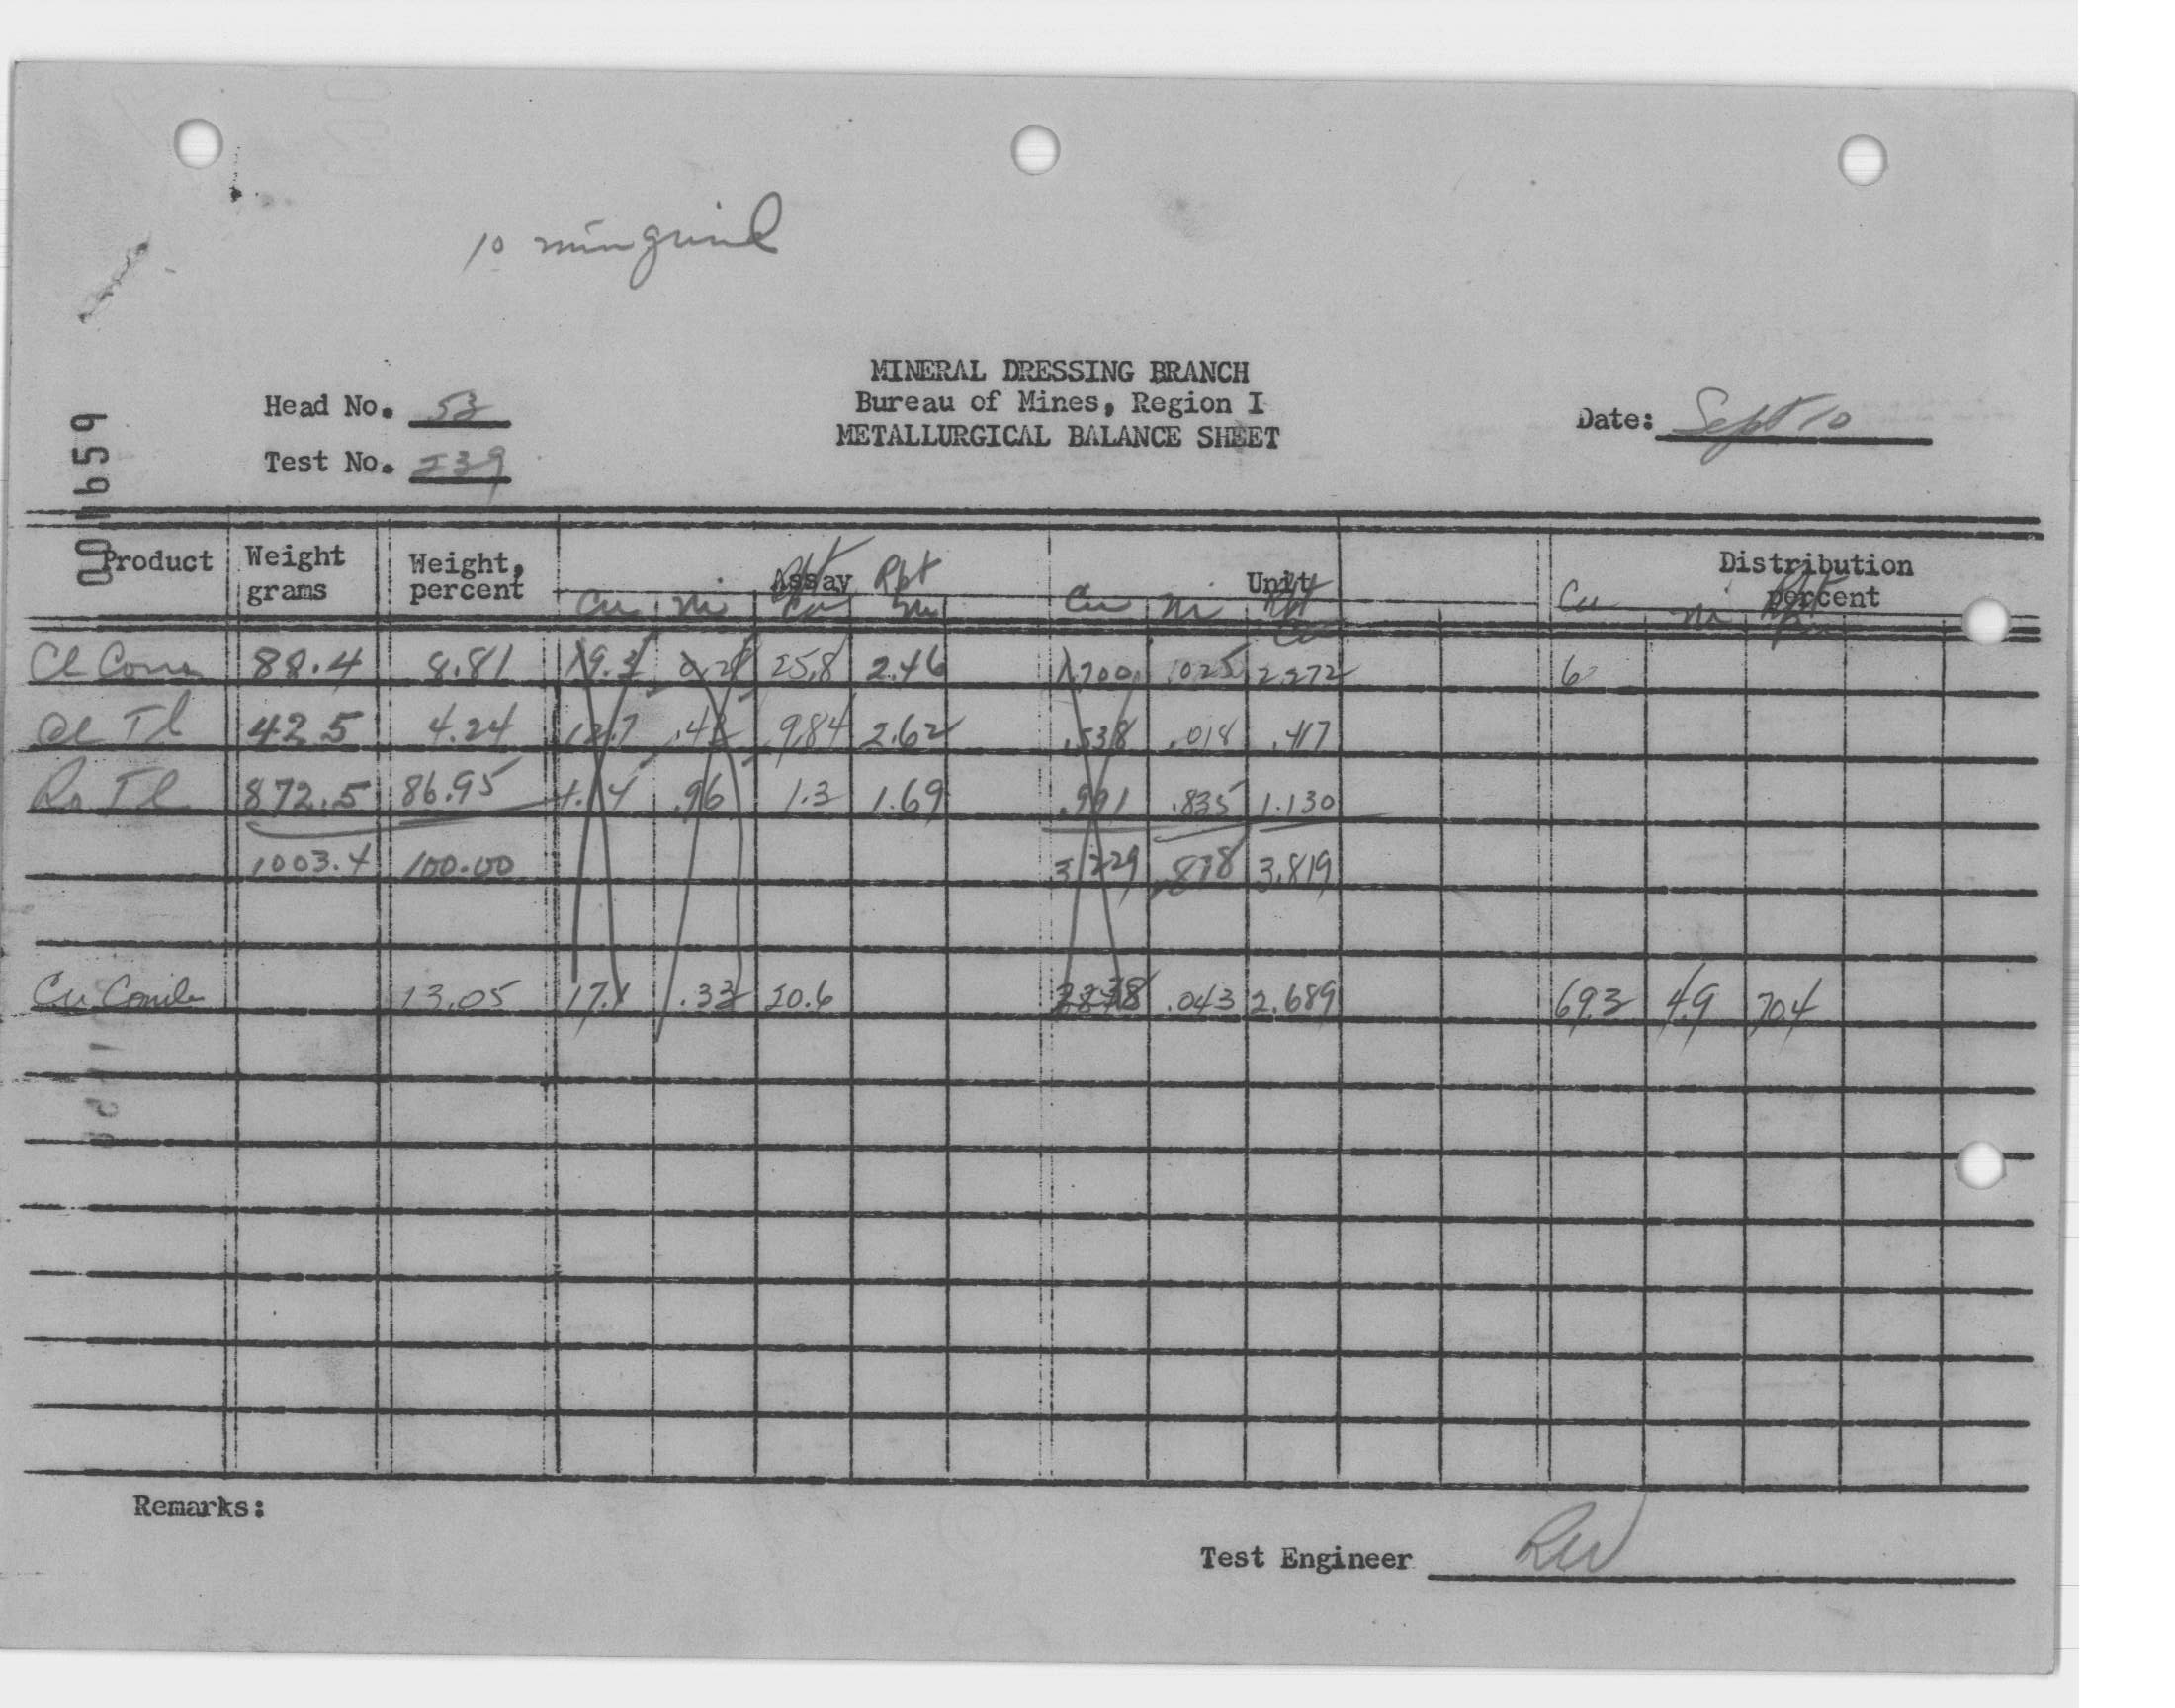 10 min grind
MINERAL DRESSING BRANCH
Head No. 53 Bureau of Mines, Region I Date: Sept 10
METALLURGICAL BALANCE SHEET
Test No. 239
001659
Product Weight grams Weight, percent Assay Unit Distribution percent
Cu Ni Rpt Cu Rpt Ni Cu Ni Rpt Cu Cu Ni Rpt Cu
Cl Conc 88.4 8.81 19.3 0.28 25.8 2.46 1.700 .025 2.272 6
Cl Tl 42.5 4.24 12.7 .42 9.84 2.62 .538 .018 .417
Ro Tl 872.5 86.95 1.14 .96 1.3 1.69 .991 .835 1.130
1003.4 100.00 3.229 .878 3.819
Cu Comb 13.05 17.1 .33 20.6 2.238 .043 2.689 69.3 4.9 70.4
Remarks:
Test Engineer RW